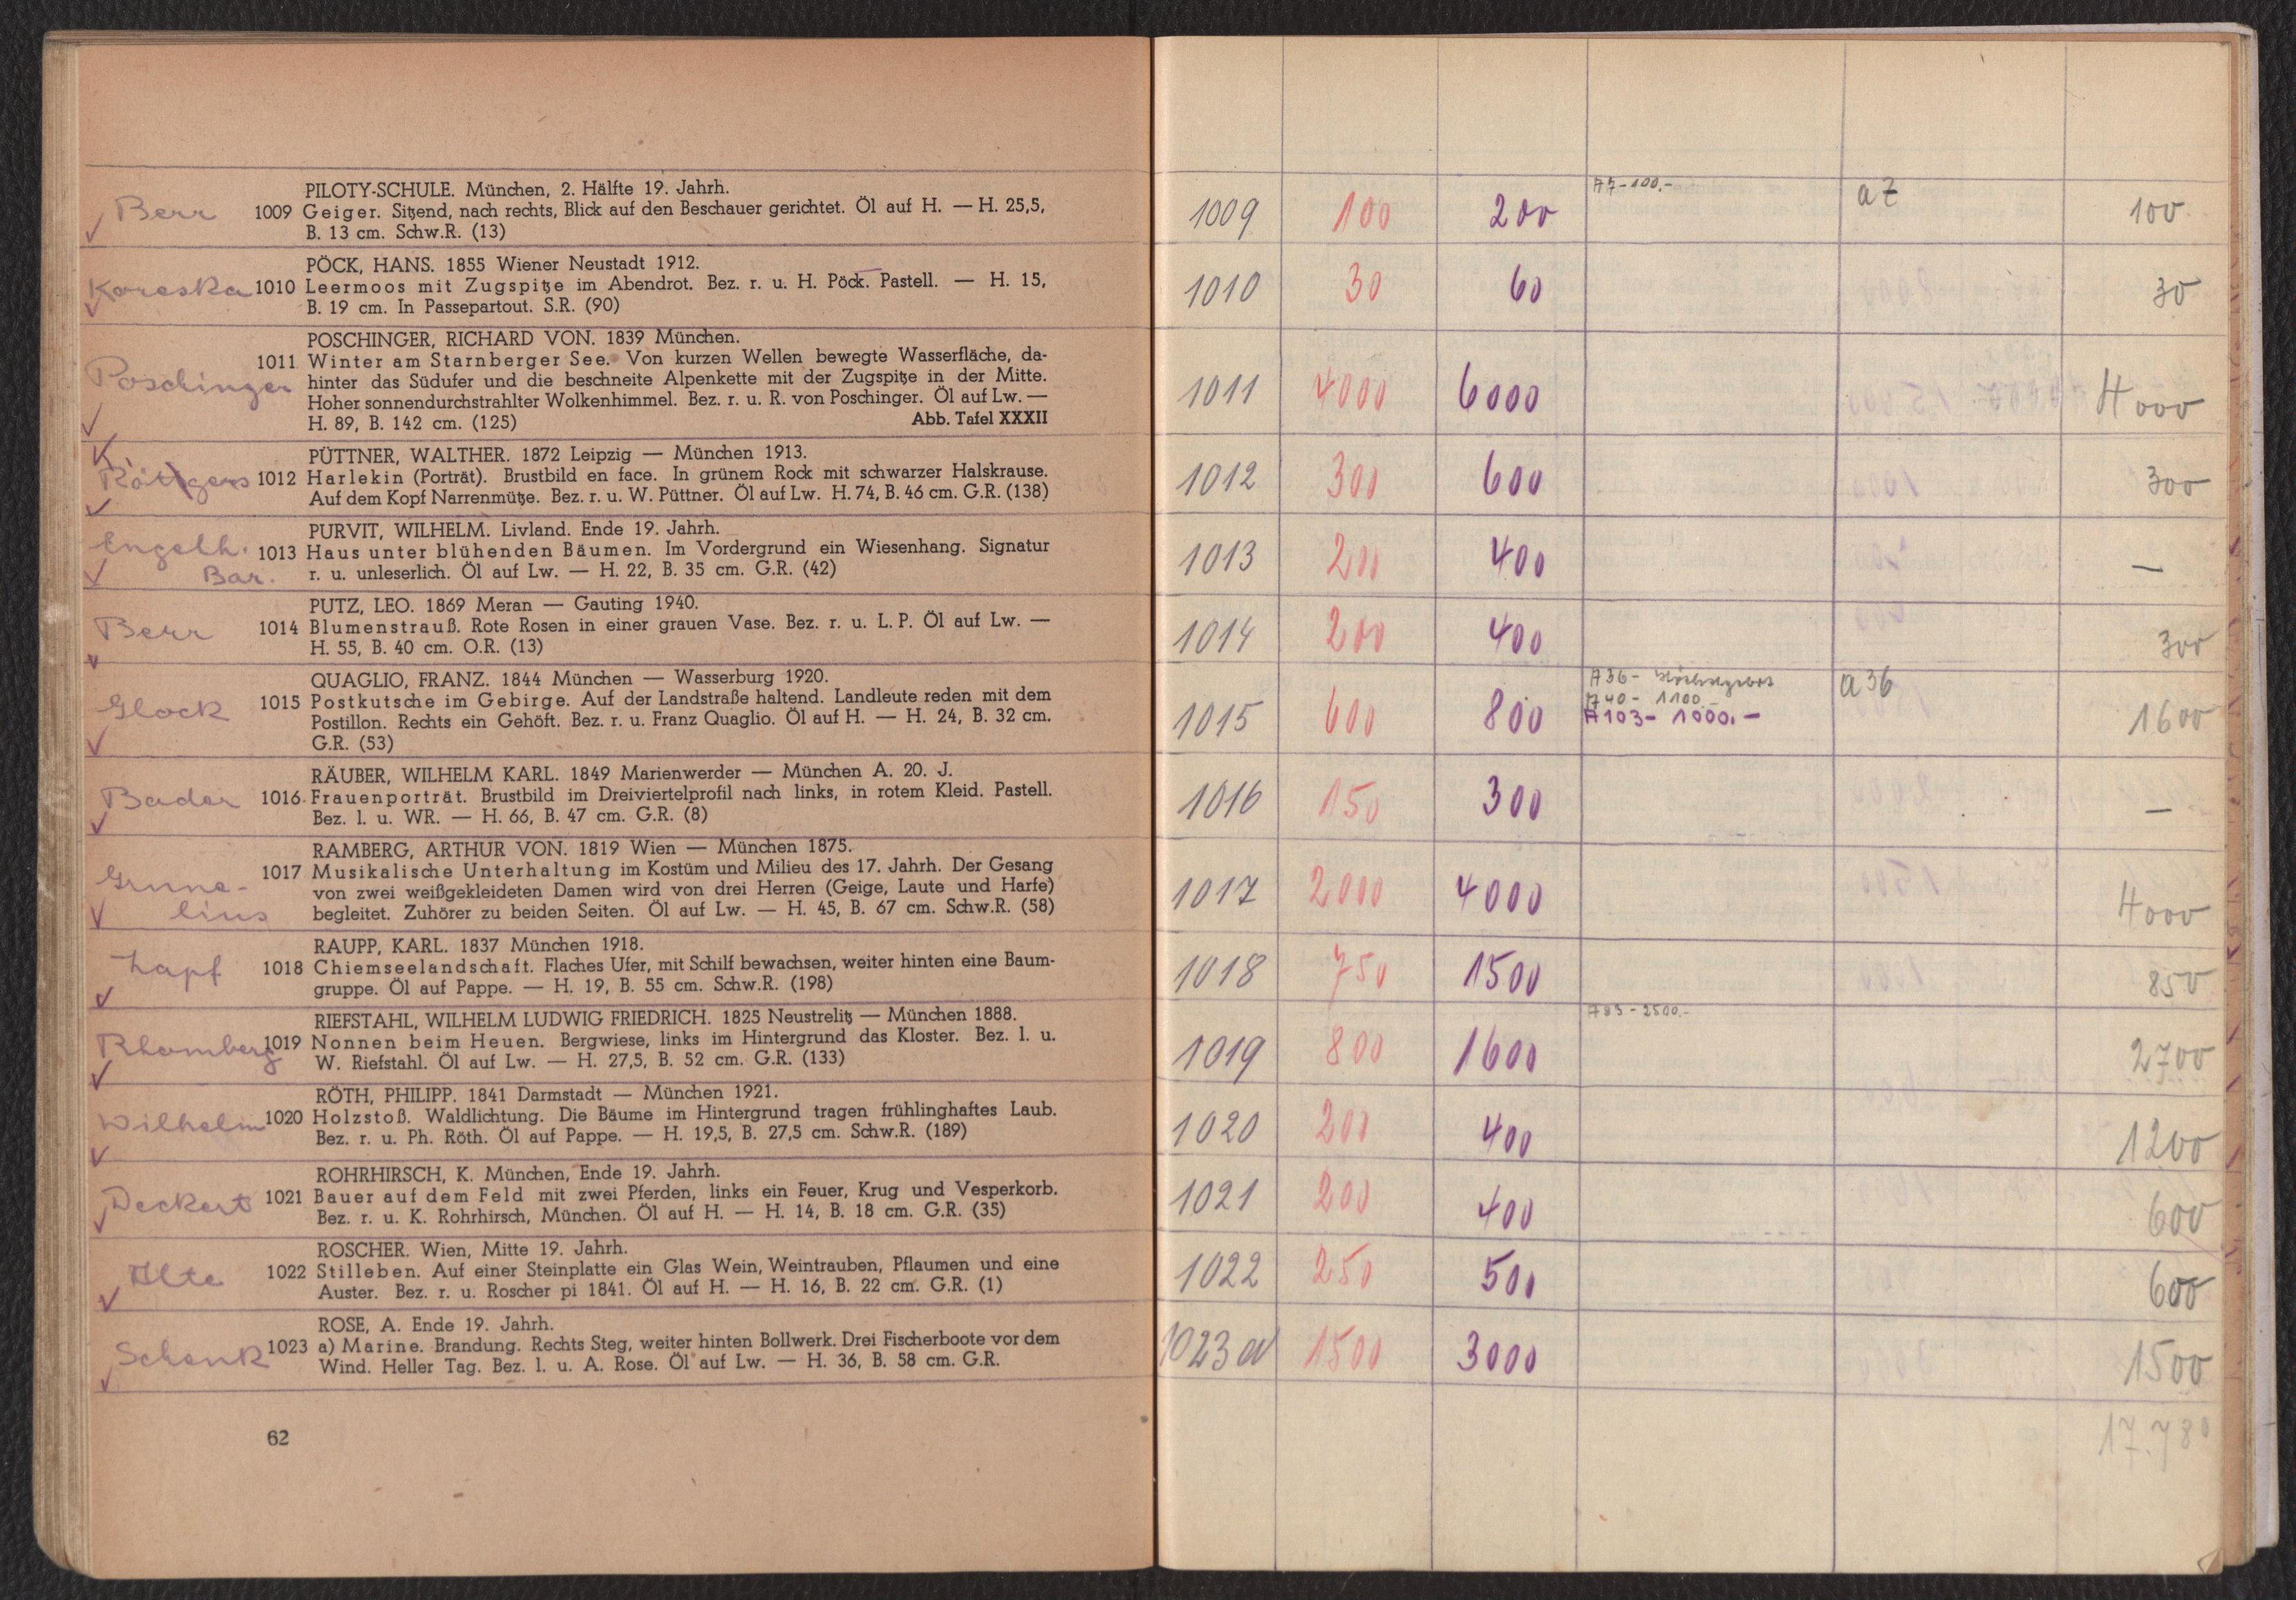 PILOTY-SCHULE. München, 2. Hälfte 19. Jahrh.
Berr 1009 Geiger. Sitzend, nach rechts, Blick auf den Beschauer gerichtet. Öl auf H. — H. 25,5,
B. 13 cm. Schw.R. (13)
PÖCK, HANS. 1855 Wiener Neustadt 1912.
Koreska 1010 Leermoos mit Zugspitze im Abendrot. Bez. r. u. H. Pöck. Pastell. — H. 15,
B. 19 cm. In Passepartout. S.R. (90)
POSCHINGER, RICHARD VON. 1839 München.
1011 Winter am Starnberger See. Von kurzen Wellen bewegte Wasserfläche, da-
Poschinger hinter das Südufer und die beschneite Alpenkette mit der Zugspitze in der Mitte.
Hoher sonnendurchstrahlter Wolkenhimmel. Bez. r. u. R. von Poschinger. Öl auf Lw. —
H. 89, B. 142 cm. (125) Abb. Tafel XXXII
PÜTTNER, WALTHER. 1872 Leipzig — München 1913.
1012 Harlekin (Porträt). Brustbild en face. In grünem Rock mit schwarzer Halskrause.
Auf dem Kopf Narrenmütze. Bez. r. u. W. Püttner. Öl auf Lw. H. 74, B. 46 cm. G.R. (138)
PURVIT, WILHELM. Livland. Ende 19. Jahrh.
Engelh. 1013 Haus unter blühenden Bäumen. Im Vordergrund ein Wiesenhang. Signatur
Bar. r. u. unleserlich. Öl auf Lw. — H. 22, B. 35 cm. G.R. (42)
PUTZ, LEO. 1869 Meran — Gauting 1940.
Berr 1014 Blumenstrauß. Rote Rosen in einer grauen Vase. Bez. r. u. L. P. Öl auf Lw. —
H. 55, B. 40 cm. O.R. (13)
QUAGLIO, FRANZ. 1844 München — Wasserburg 1920.
Glock 1015 Postkutsche im Gebirge. Auf der Landstraße haltend. Landleute reden mit dem
Postillon. Rechts ein Gehöft. Bez. r. u. Franz Quaglio. Öl auf H. — H. 24, B. 32 cm.
G.R. (53)
RÄUBER, WILHELM KARL. 1849 Marienwerder — München A. 20. J.
Bader 1016 Frauenporträt. Brustbild im Dreiviertelprofil nach links, in rotem Kleid. Pastell.
Bez. l. u. WR. — H. 66, B. 47 cm. G.R. (8)
RAMBERG, ARTHUR VON. 1819 Wien — München 1875.
Grune- 1017 Musikalische Unterhaltung im Kostüm und Milieu des 17. Jahrh. Der Gesang
von zwei weißgekleideten Damen wird von drei Herren (Geige, Laute und Harfe)
lius begleitet. Zuhörer zu beiden Seiten. Öl auf Lw. — H. 45, B. 67 cm. Schw.R. (58)
RAUPP, KARL. 1837 München 1918.
Zapf 1018 Chiemseelandschaft. Flaches Ufer, mit Schilf bewachsen, weiter hinten eine Baum-
gruppe. Öl auf Pappe. — H. 19, B. 55 cm. Schw.R. (198)
RIEFSTAHL, WILHELM LUDWIG FRIEDRICH. 1825 Neustrelitz — München 1888.
Rhomberg 1019 Nonnen beim Heuen. Bergwiese, links im Hintergrund das Kloster. Bez. l. u.
W. Riefstahl. Öl auf Lw. — H. 27,5, B. 52 cm. G.R. (133)
RÖTH, PHILIPP. 1841 Darmstadt — München 1921.
Wilhelm 1020 Holzstoß. Waldlichtung. Die Bäume im Hintergrund tragen frühlinghaftes Laub.
Bez. r. u. Ph. Röth. Öl auf Pappe. — H. 19,5, B. 27,5 cm. Schw.R. (189)
ROHRHIRSCH, K. München, Ende 19. Jahrh.
Deckert 1021 Bauer auf dem Feld mit zwei Pferden, links ein Feuer, Krug und Vesperkorb.
Bez. r. u. K. Rohrhirsch, München. Öl auf H. — H. 14, B. 18 cm. G.R. (35)
ROSCHER. Wien, Mitte 19. Jahrh.
Alte 1022 Stilleben. Auf einer Steinplatte ein Glas Wein, Weintrauben, Pflaumen und eine
Auster. Bez. r. u. Roscher pi 1841. Öl auf H. — H. 16, B. 22 cm. G.R. (1)
ROSE, A. Ende 19. Jahrh.
Schenk 1023 a) Marine. Brandung. Rechts Steg, weiter hinten Bollwerk. Drei Fischerboote vor dem
Wind. Heller Tag. Bez. l. u. A. Rose. Öl auf Lw. — H. 36, B. 58 cm. G.R.
62
A7-100.-
1009 100 200 a7 100
1010 30 60 30
1011 4000 6000 4000
1012 300 600 300
1013 200 400 —
1014 200 400 300
A36- a36
A40- 1100.-
1015 600 800 A103- 1000.- 1600
1016 150 300 —
1017 2000 4000 4000
1018 750 1500 850
2500.-
1019 800 1600 2700
1020 200 400 1200
1021 200 400 600
1022 250 500 600
1023 a 1500 3000 1500
17.780